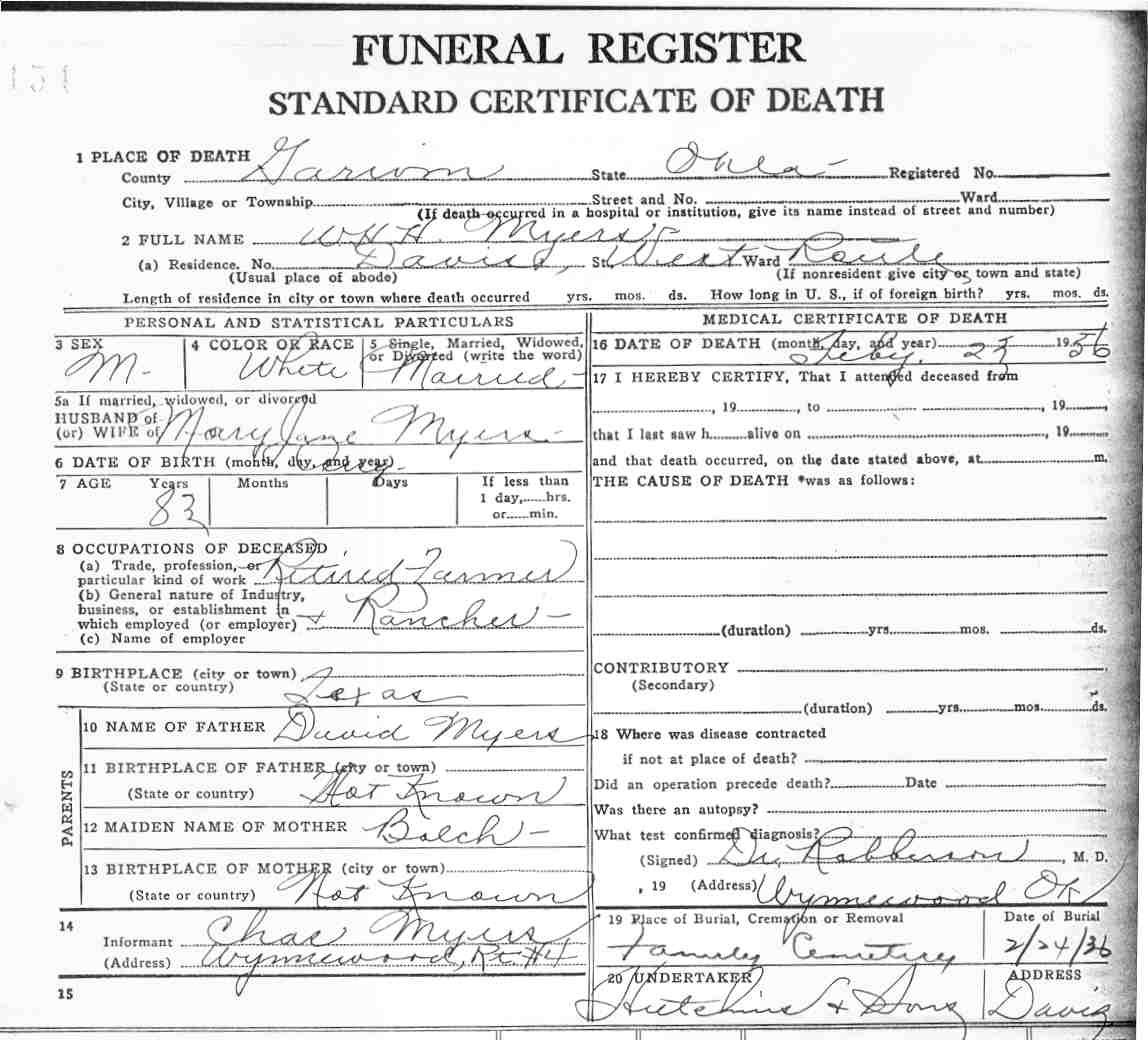 151
FUNERAL REGISTER
STANDARD CERTIFICATE OF DEATH
1 PLACE OF DEATH
County Garvin State Okla - Registered No.
City, Village or Township Street and No. Ward
(If death occurred in a hospital or institution, give its name instead of street and number)
2 FULL NAME W H H. Myers
(a) Residence. No. Davis, St. West Ward Route
(Usual place of abode) (If nonresident give city or town and state)
Length of residence in city or town where death occurred yrs. mos. ds. How long in U. S., if of foreign birth? yrs. mos. ds.
PERSONAL AND STATISTICAL PARTICULARS
3 SEX 4 COLOR OR RACE 5 Single, Married, Widowed,
or Divorced (write the word)
M- White Married-
5a If married, widowed, or divorced
HUSBAND of
(or) WIFE of Mary Jane Myers-
6 DATE OF BIRTH (month, day, and year)
7 AGE Years Months Days If less than
1 day,......hrs.
or......min.
83
8 OCCUPATIONS OF DECEASED
(a) Trade, profession, or
particular kind of work Retired Farmer
(b) General nature of Industry,
business, or establishment in
which employed (or employer) + Rancher -
(c) Name of employer
9 BIRTHPLACE (city or town)
(State or country) Texas
PARENTS
10 NAME OF FATHER David Myers
11 BIRTHPLACE OF FATHER (city or town)
(State or country) Not Known
12 MAIDEN NAME OF MOTHER Bolch -
13 BIRTHPLACE OF MOTHER (city or town)
(State or country) Not Known
14
Informant Chas Myers
(Address) Wynnewood, Rt #4
15
MEDICAL CERTIFICATE OF DEATH
16 DATE OF DEATH (month, day, and year) Feby. 23 1936
17 I HEREBY CERTIFY, That I attended deceased from
, 19 , to , 19
that I last saw h alive on , 19
and that death occurred, on the date stated above, at m.
THE CAUSE OF DEATH *was as follows:
(duration) yrs. mos. ds.
CONTRIBUTORY
(Secondary)
(duration) yrs. mos. ds.
18 Where was disease contracted
if not at place of death?
Did an operation precede death? Date
Was there an autopsy?
What test confirmed diagnosis?
(Signed) Dr, Robberson, M. D.
, 19 (Address) Wynnewood Ok
19 Place of Burial, Cremation or Removal Date of Burial
Family Cemetery 2/24/36
20 UNDERTAKER ADDRESS
Hutchins & Sons Davis